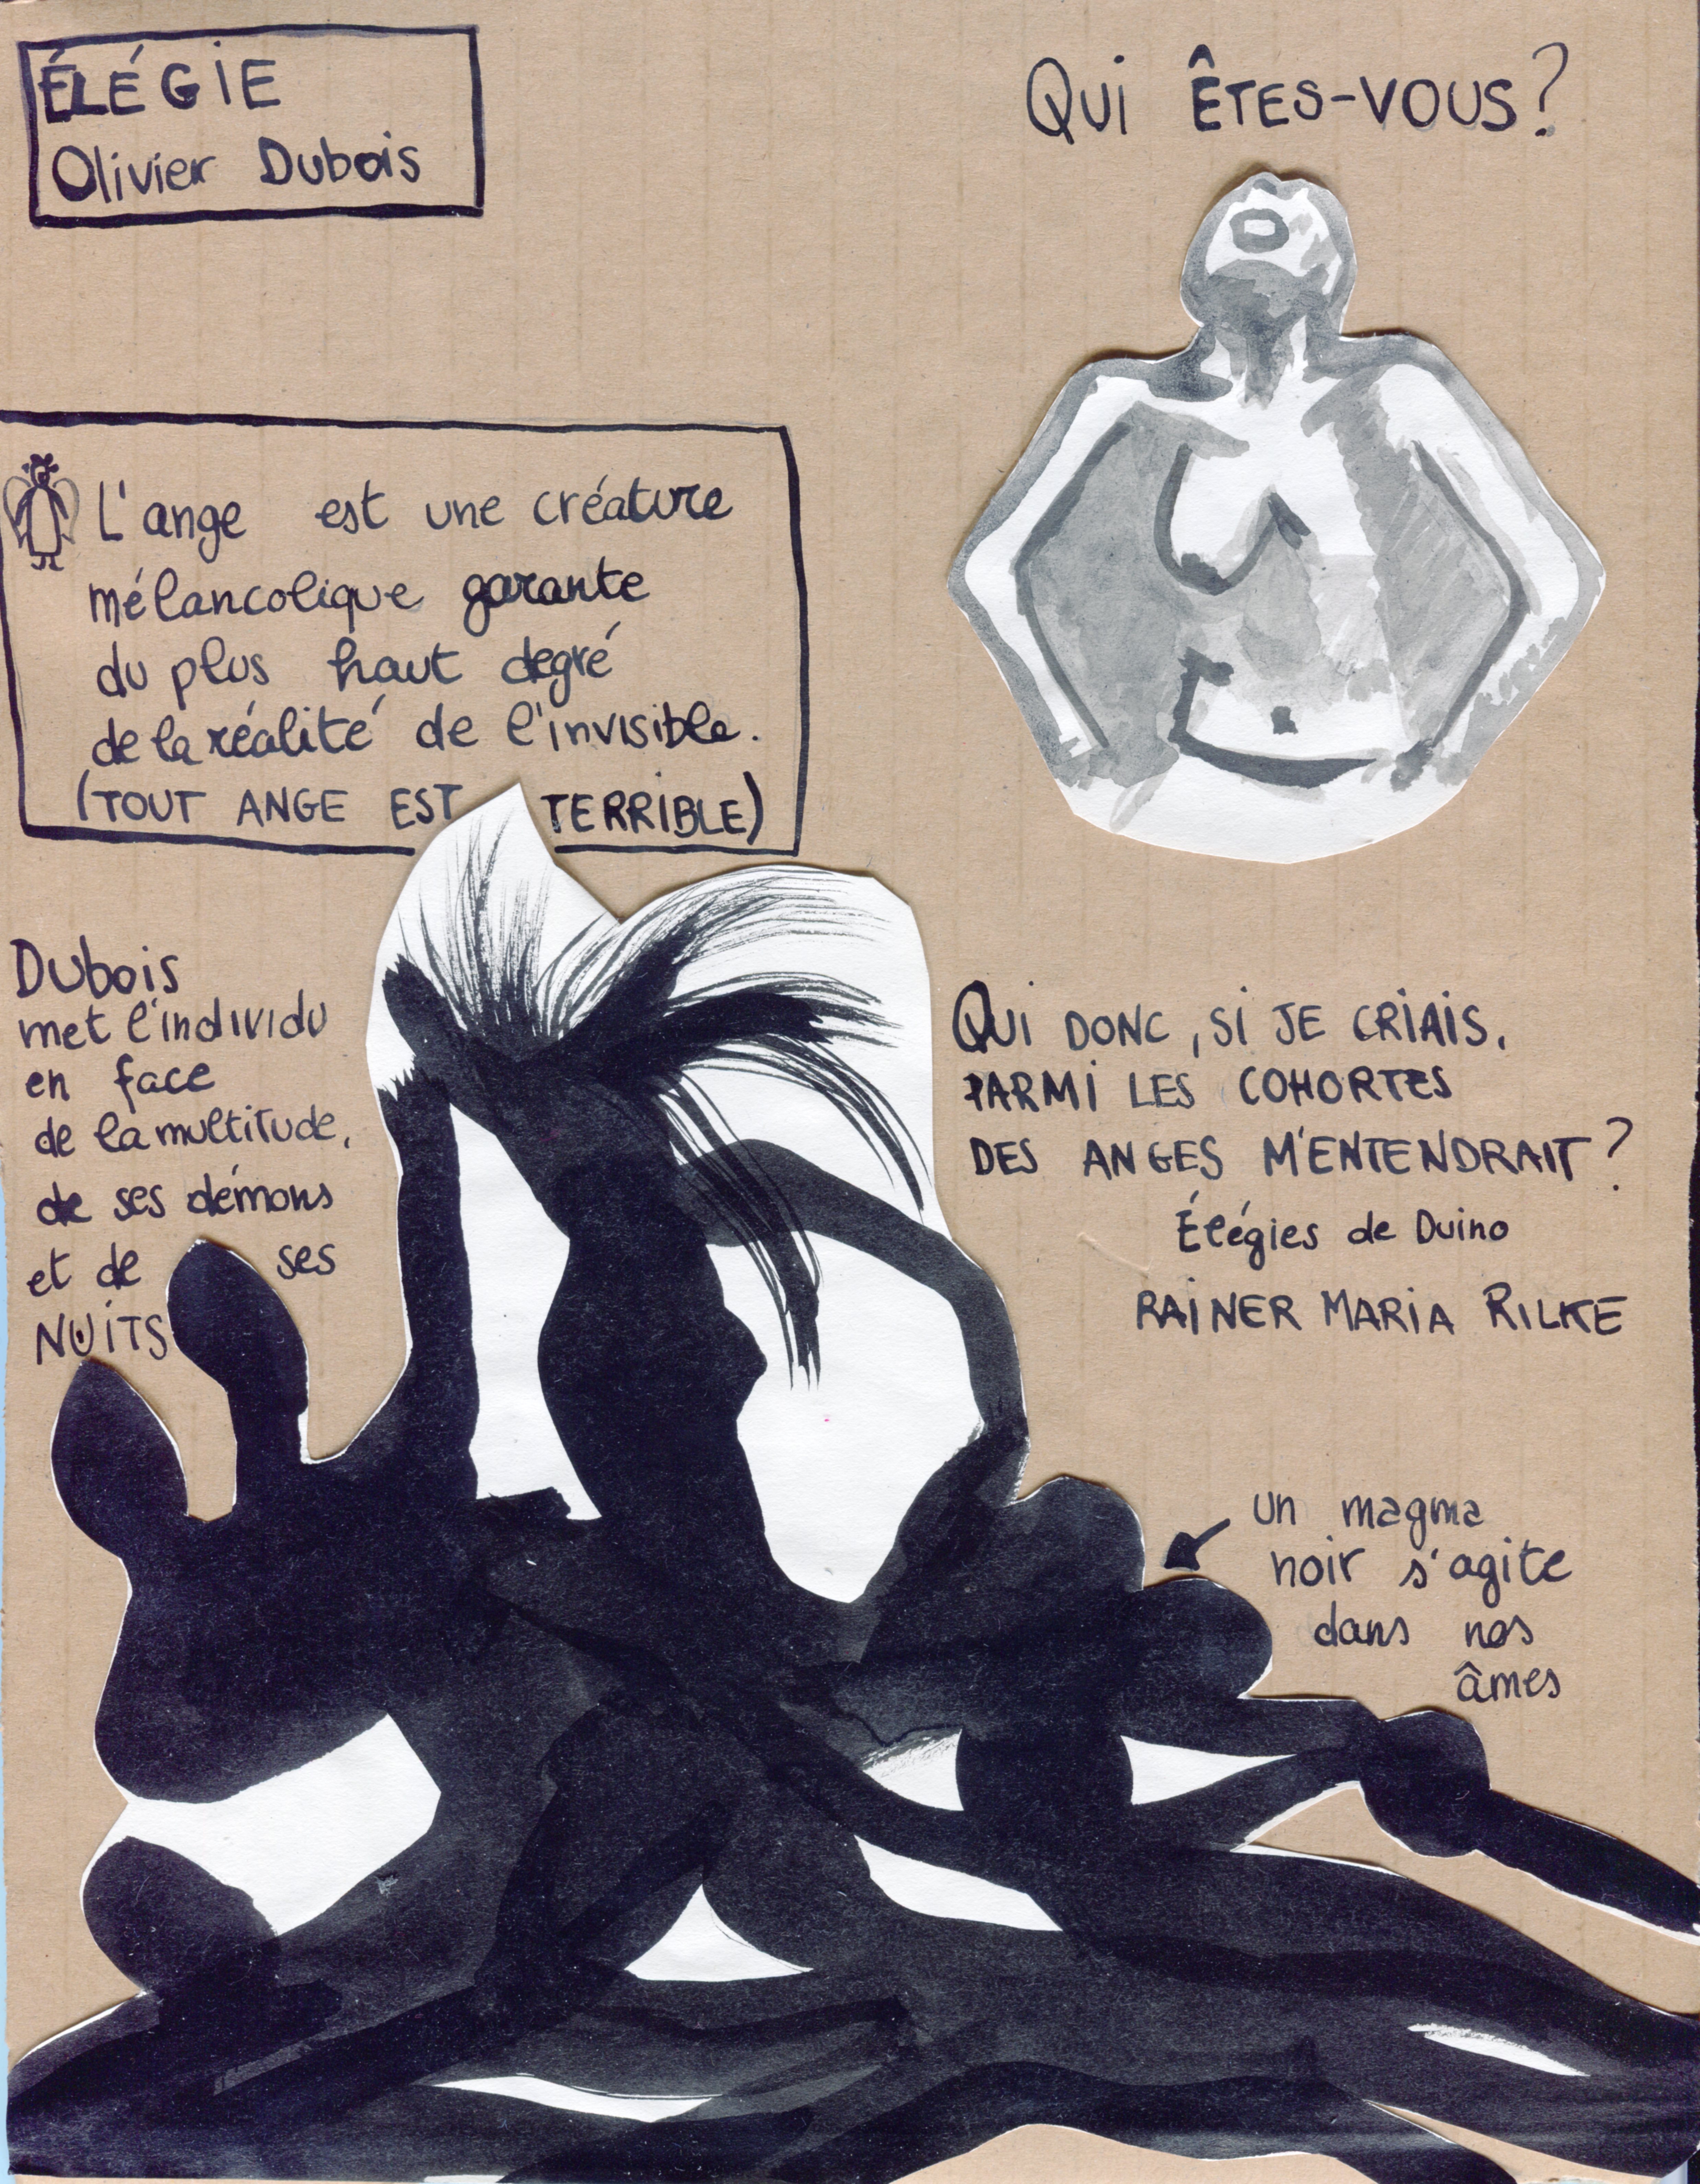 ÉLÉGIE
Olivier Dubois
QUI ÊTES-VOUS?
L'ange est une créature
mélancolique garante
du plus haut degré
de la réalité de l'invisible.
(TOUT ANGE EST TERRIBLE)
Dubois
met l'individu
en face
de la multitude,
de ses démons
et de ses
NUITS
QUI DONC, SI JE CRIAIS,
PARMI LES COHORTES
DES ANGES M'ENTENDRAIT?
Élégies de Duino
RAINER MARIA RILKE
un magma
noir s'agite
dans nos
âmes